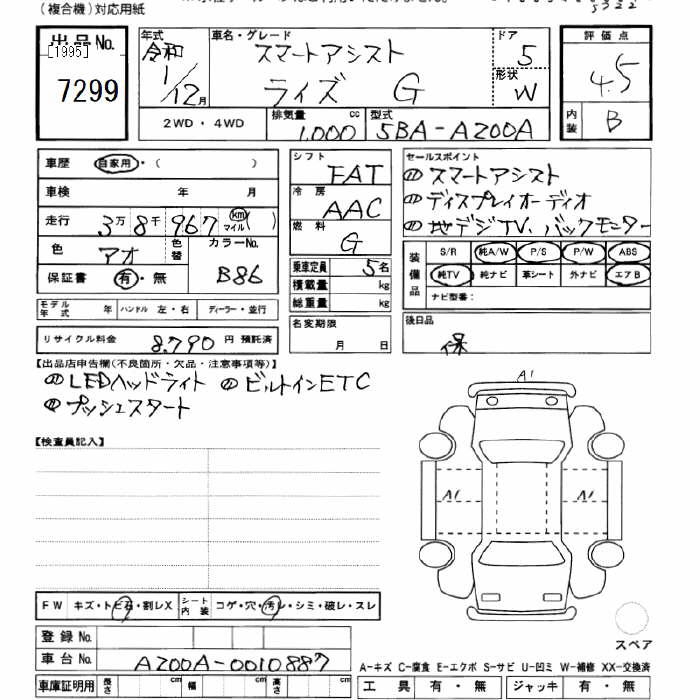 (複合機)対応用紙
出品No.
[1995]
7299
年式
令和
1/12月
車名・グレード
スマートアシスト
ライズ G
ドア
5
形状
W
評価点
4.5
内装
B
2WD・4WD
排気量
1,000 cc
型式
5BA-A200A
車歴 自家用・( )
車検 年 月
走行 3万8千967 km マイル( )
色 アオ 色替 カラーNo. B86
保証書 有・無
モデル年式 年 ハンドル 左・右 ディーラー・並行
リサイクル料金 8,790 円 預託済
シフト FAT
冷房 AAC
燃料 G
乗車定員 5名
積載量 kg
総重量 kg
名変期限
月 日
セールスポイント
①スマートアシスト
②ディスプレイオーディオ
③地デジTV、バックモニター
装備品
S/R 純A/W P/S P/W ABS
純TV 純ナビ 革シート 外ナビ エアB
ナビ型番:
後日品
保
【出品店申告欄(不良箇所・欠品・注意事項等)】
LEDヘッドライト ビルトインETC
プッシュスタート
【検査員記入】
A1
A1 A1
FW キズ・トビ石・割レX シート内装 コゲ・穴・汚レ・シミ・破レ・スレ
登録No.
車台No. A200A-0010887
車庫証明用 長さ cm 幅 cm 高さ cm
スペア
A-キズ C-腐食 E-エクボ S-サビ U-凹ミ W-補修 XX-交換済
工具 有・無 ジャッキ 有・無